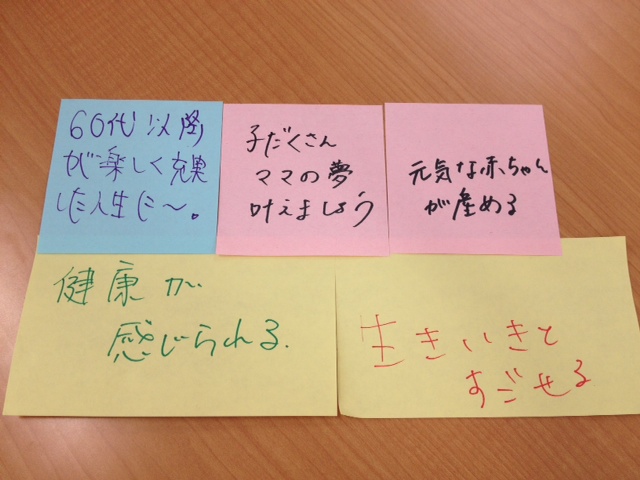 60代以降
が楽しく充実
した人生に〜。
子だくさん
ママの夢
叶えましょう
元気な赤ちゃん
が産める
健康が
感じられる.
生きいきと
すごせる